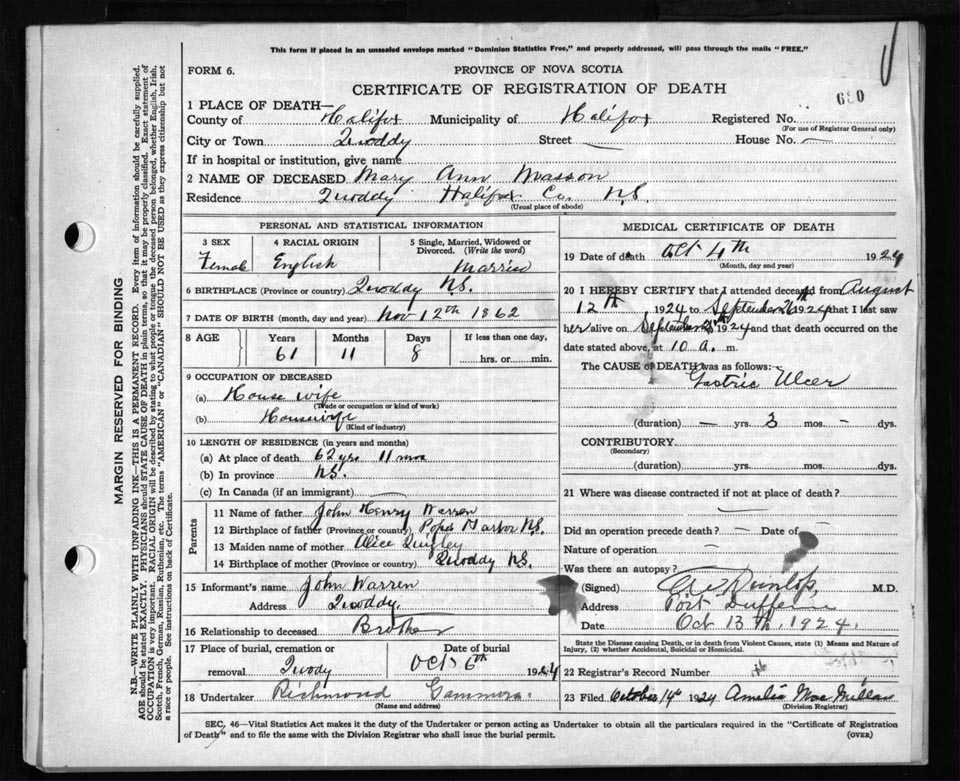 This form if placed in an unsealed envelope marked "Dominion Statistics Free," and properly addressed, will pass through the mails "FREE."
FORM 6.
PROVINCE OF NOVA SCOTIA
CERTIFICATE OF REGISTRATION OF DEATH
680
1 PLACE OF DEATH—
County of Halifax Municipality of Halifax Registered No.
(For use of Registrar General only)
City or Town Quoddy Street — House No. —
If in hospital or institution, give name
2 NAME OF DECEASED Mary Ann Wasson
Residence Quoddy Halifax Co. N.S.
(Usual place of abode)
PERSONAL AND STATISTICAL INFORMATION
3 SEX 4 RACIAL ORIGIN 5 Single, Married, Widowed or Divorced. (Write the word)
Female English Married
6 BIRTHPLACE (Province or country) Quoddy N.S.
7 DATE OF BIRTH (month, day and year) Nov 12th 1862
8 AGE Years Months Days If less than one day,
61 11 8 hrs. or min.
9 OCCUPATION OF DECEASED
(a) House wife
(Trade or occupation or kind of work)
(b) Housewife
(Kind of industry)
10 LENGTH OF RESIDENCE (in years and months)
(a) At place of death 62 yrs 11 mos
(b) In province N.S.
(c) In Canada (if an immigrant) —
Parents
11 Name of father John Henry Warren
12 Birthplace of father (Province or country) Popes Harbor N.S.
13 Maiden name of mother Alice Quigley
14 Birthplace of mother (Province or country) Quoddy N.S.
15 Informant's name John Warren
Address Quoddy.
16 Relationship to deceased Brother
17 Place of burial, cremation or removal Date of burial
Quody Oct 6th 1924
18 Undertaker Richmond
(Name and address)
MEDICAL CERTIFICATE OF DEATH
19 Date of death Oct 4th 1924
(Month, day and year)
20 I HEREBY CERTIFY that I attended deceased from August
12th 1924 to September 26th 1924 that I last saw
her alive on September 1924 and that death occurred on
date stated above, at 10 a. m.
The CAUSE of DEATH was as follows:
Gastric Ulcer
(duration) — yrs. 3 mos. — dys.
CONTRIBUTORY
(Secondary)
(duration) yrs. mos. dys.
21 Where was disease contracted if not at place of death?
—
Did an operation precede death? — Date of
Nature of operation —
Was there an autopsy? —
(Signed) Dunlop M.D.
Address Port Dufferin
Date Oct 13th, 1924.
State the Disease causing Death, or in death from Violent Causes, state (1) Means and Nature of Injury, (2) whether Accidental, Suicidal or Homicidal.
22 Registrar's Record Number
23 Filed October 14th 1924 Amelia MacMillan
(Division Registrar)
SEC. 46—Vital Statistics Act makes it the duty of the Undertaker or person acting as Undertaker to obtain all the particulars required in the "Certificate of Registration
of Death" and to file the same with the Division Registrar who shall issue the burial permit. (OVER)
MARGIN RESERVED FOR BINDING
N.B.—WRITE PLAINLY WITH UNFADING INK—THIS IS A PERMANENT RECORD. Every item of information should be carefully supplied.
AGE should be stated EXACTLY. PHYSICIANS should STATE CAUSE OF DEATH in plain terms, so that it may be properly classified. Exact statement of
OCCUPATION is very important. RACIAL ORIGIN will be described by stating to what people or tongue the deceased person belonged, whether English, Irish,
Scotch, French, German, Russian, Ruthenian, etc. The terms "AMERICAN" or "CANADIAN" SHOULD NOT BE USED as they express citizenship but not
a race or people. See instructions on back of Certificate.